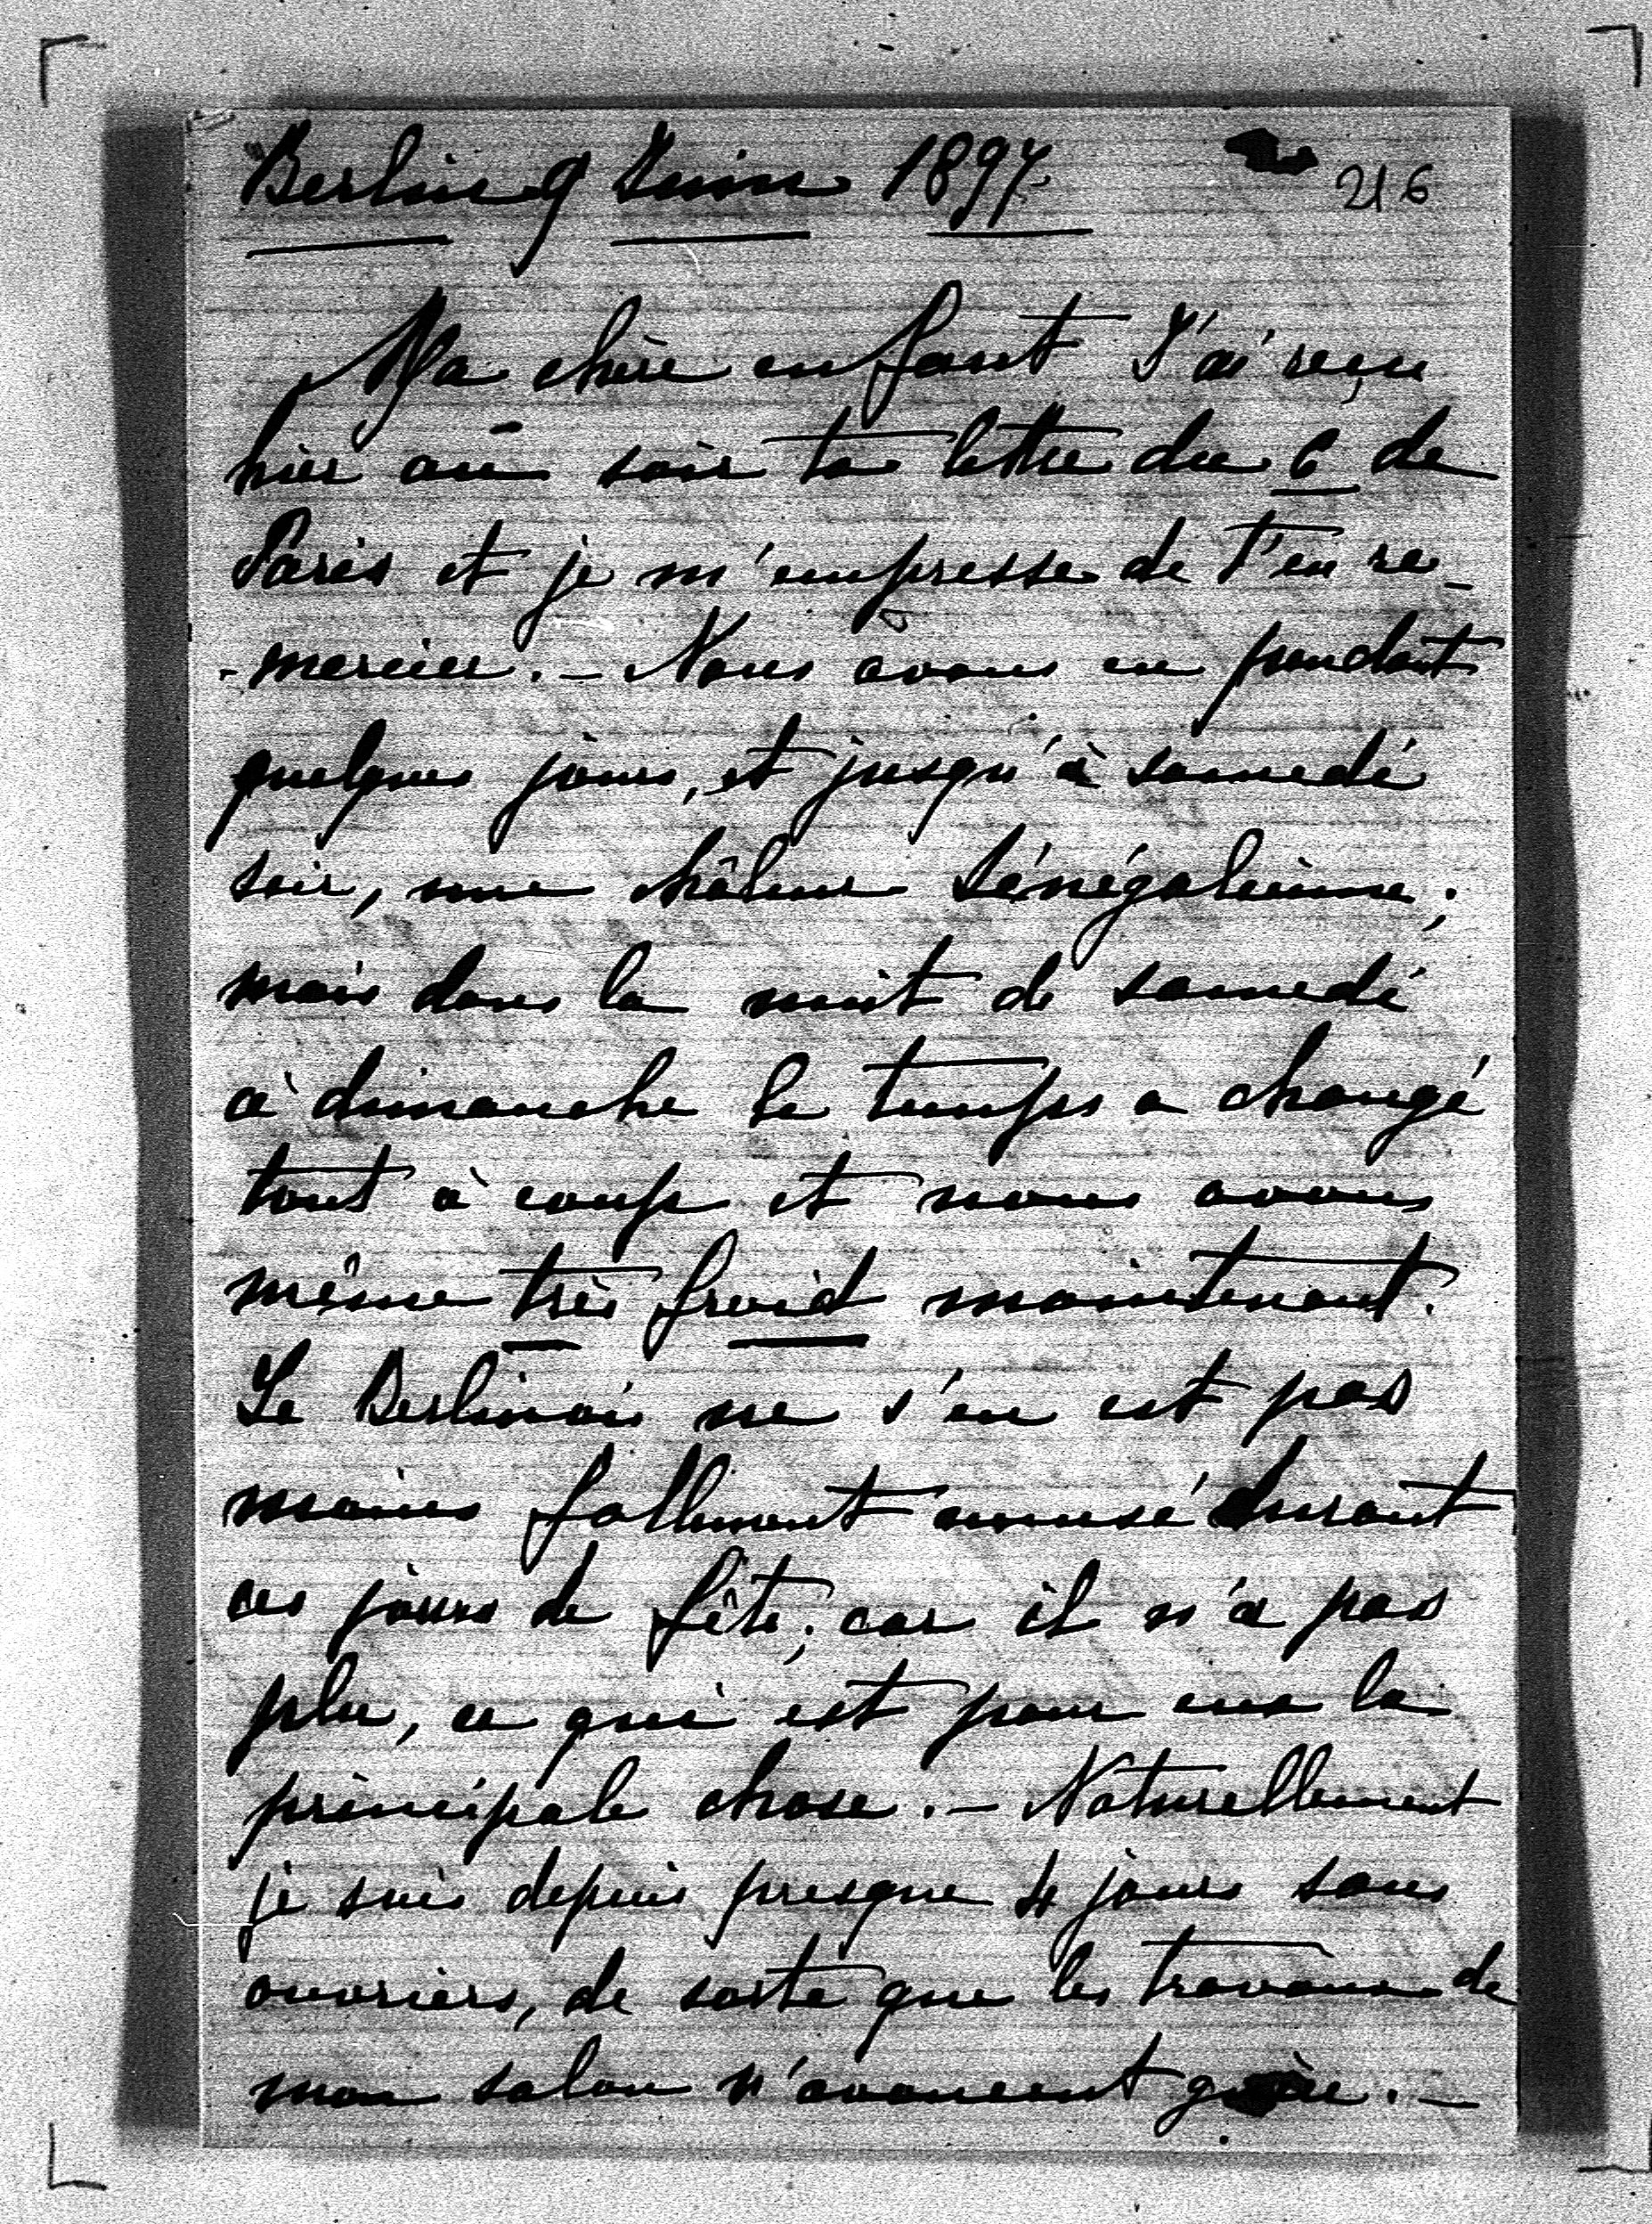 Berlin 9 Juin 1897.
216
Ma chère enfant J'ai reçu
hier au soir ta lettre du 6 de
Paris et je m'empresse de t'en re-
-mercier. - Nous avons eu pendant
quelques jours, et jusqu'à samedi
soir, une châleur Sénégalienne;
mais dans la nuit de samedi
à dimanche le temps a changé
tout à coup et nous avons
même très froid maintenant.
Le Berlinois ne s'en est pas
moins follement amusé durant
ces jours de fête; car il n'a pas
plu, ce qui est pour eux la
principale chose. - Naturellement
je suis depuis presque 4 jours sans
ouvriers, de sorte que les travaux de
mon salon n'avancent guère. -